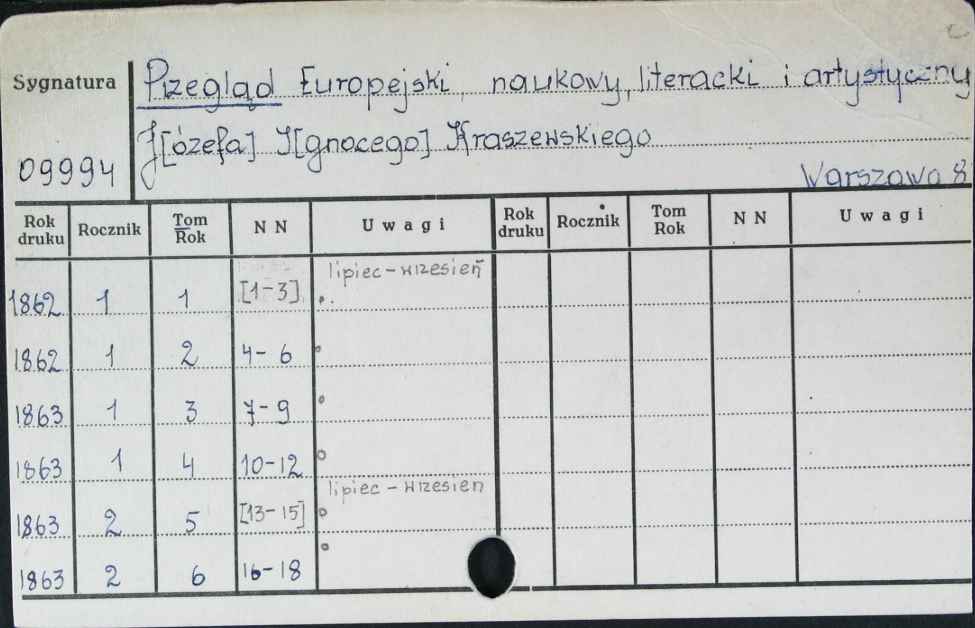 Sygnatura Przegląd Europejski, naukowy, literacki i artystyczny
J[ózefa] I[gnacego] Kraszewskiego
09994 Warszawa 8
Rok druku Rocznik Tom Rok N N Uwagi Rok druku Rocznik Tom Rok N N Uwagi
lipiec - wrzesień
1862 1 1 [1-3]
1862 1 2 4-6
1863 1 3 7-9
1863 1 4 10-12
lipiec - wrzesień
1863 2 5 [13-15]
1863 2 6 16-18